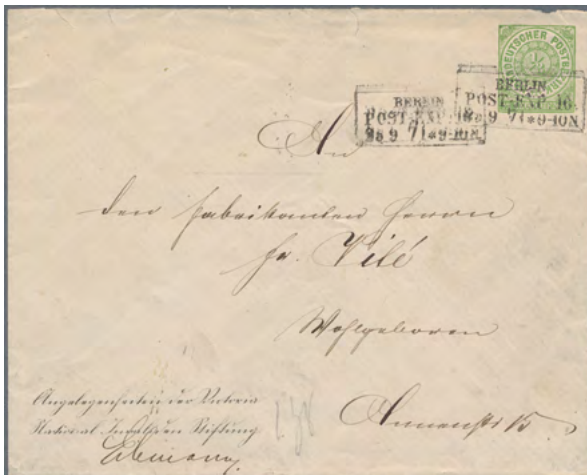 NORDDEUTSCHER POSTBEZIRK
BERLIN
POST-EXP. 16
28 9 71 * 9-10N
BERLIN
POST-EXP. 16
9 71 * 9-10N
An
den Fabrikanten Herrn
Fr. Vilé
Wohlgeboren
Annenstr. 15.
Angelegenheiten der Victoria
National Invaliden Stiftung